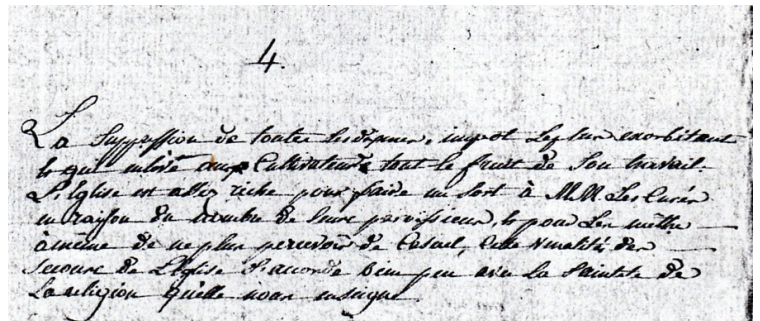 4.
La Suppression de toutes les dixmes, impot Le plus exorbitant
& qui enleve aux Cultivateurs tout le fruit de Son travail.
L'Eglise est assez riche pour faire un Sort à M.M. Les Curés
en raison du nombre de leurs paroissiens, & pour Les mettre
à même de ne plus percevoir de Casuel, Cette venalité des
Secours de L'Eglise S'accorde bien peu avec La Sainteté de
La religion qu'elle nous enseigne